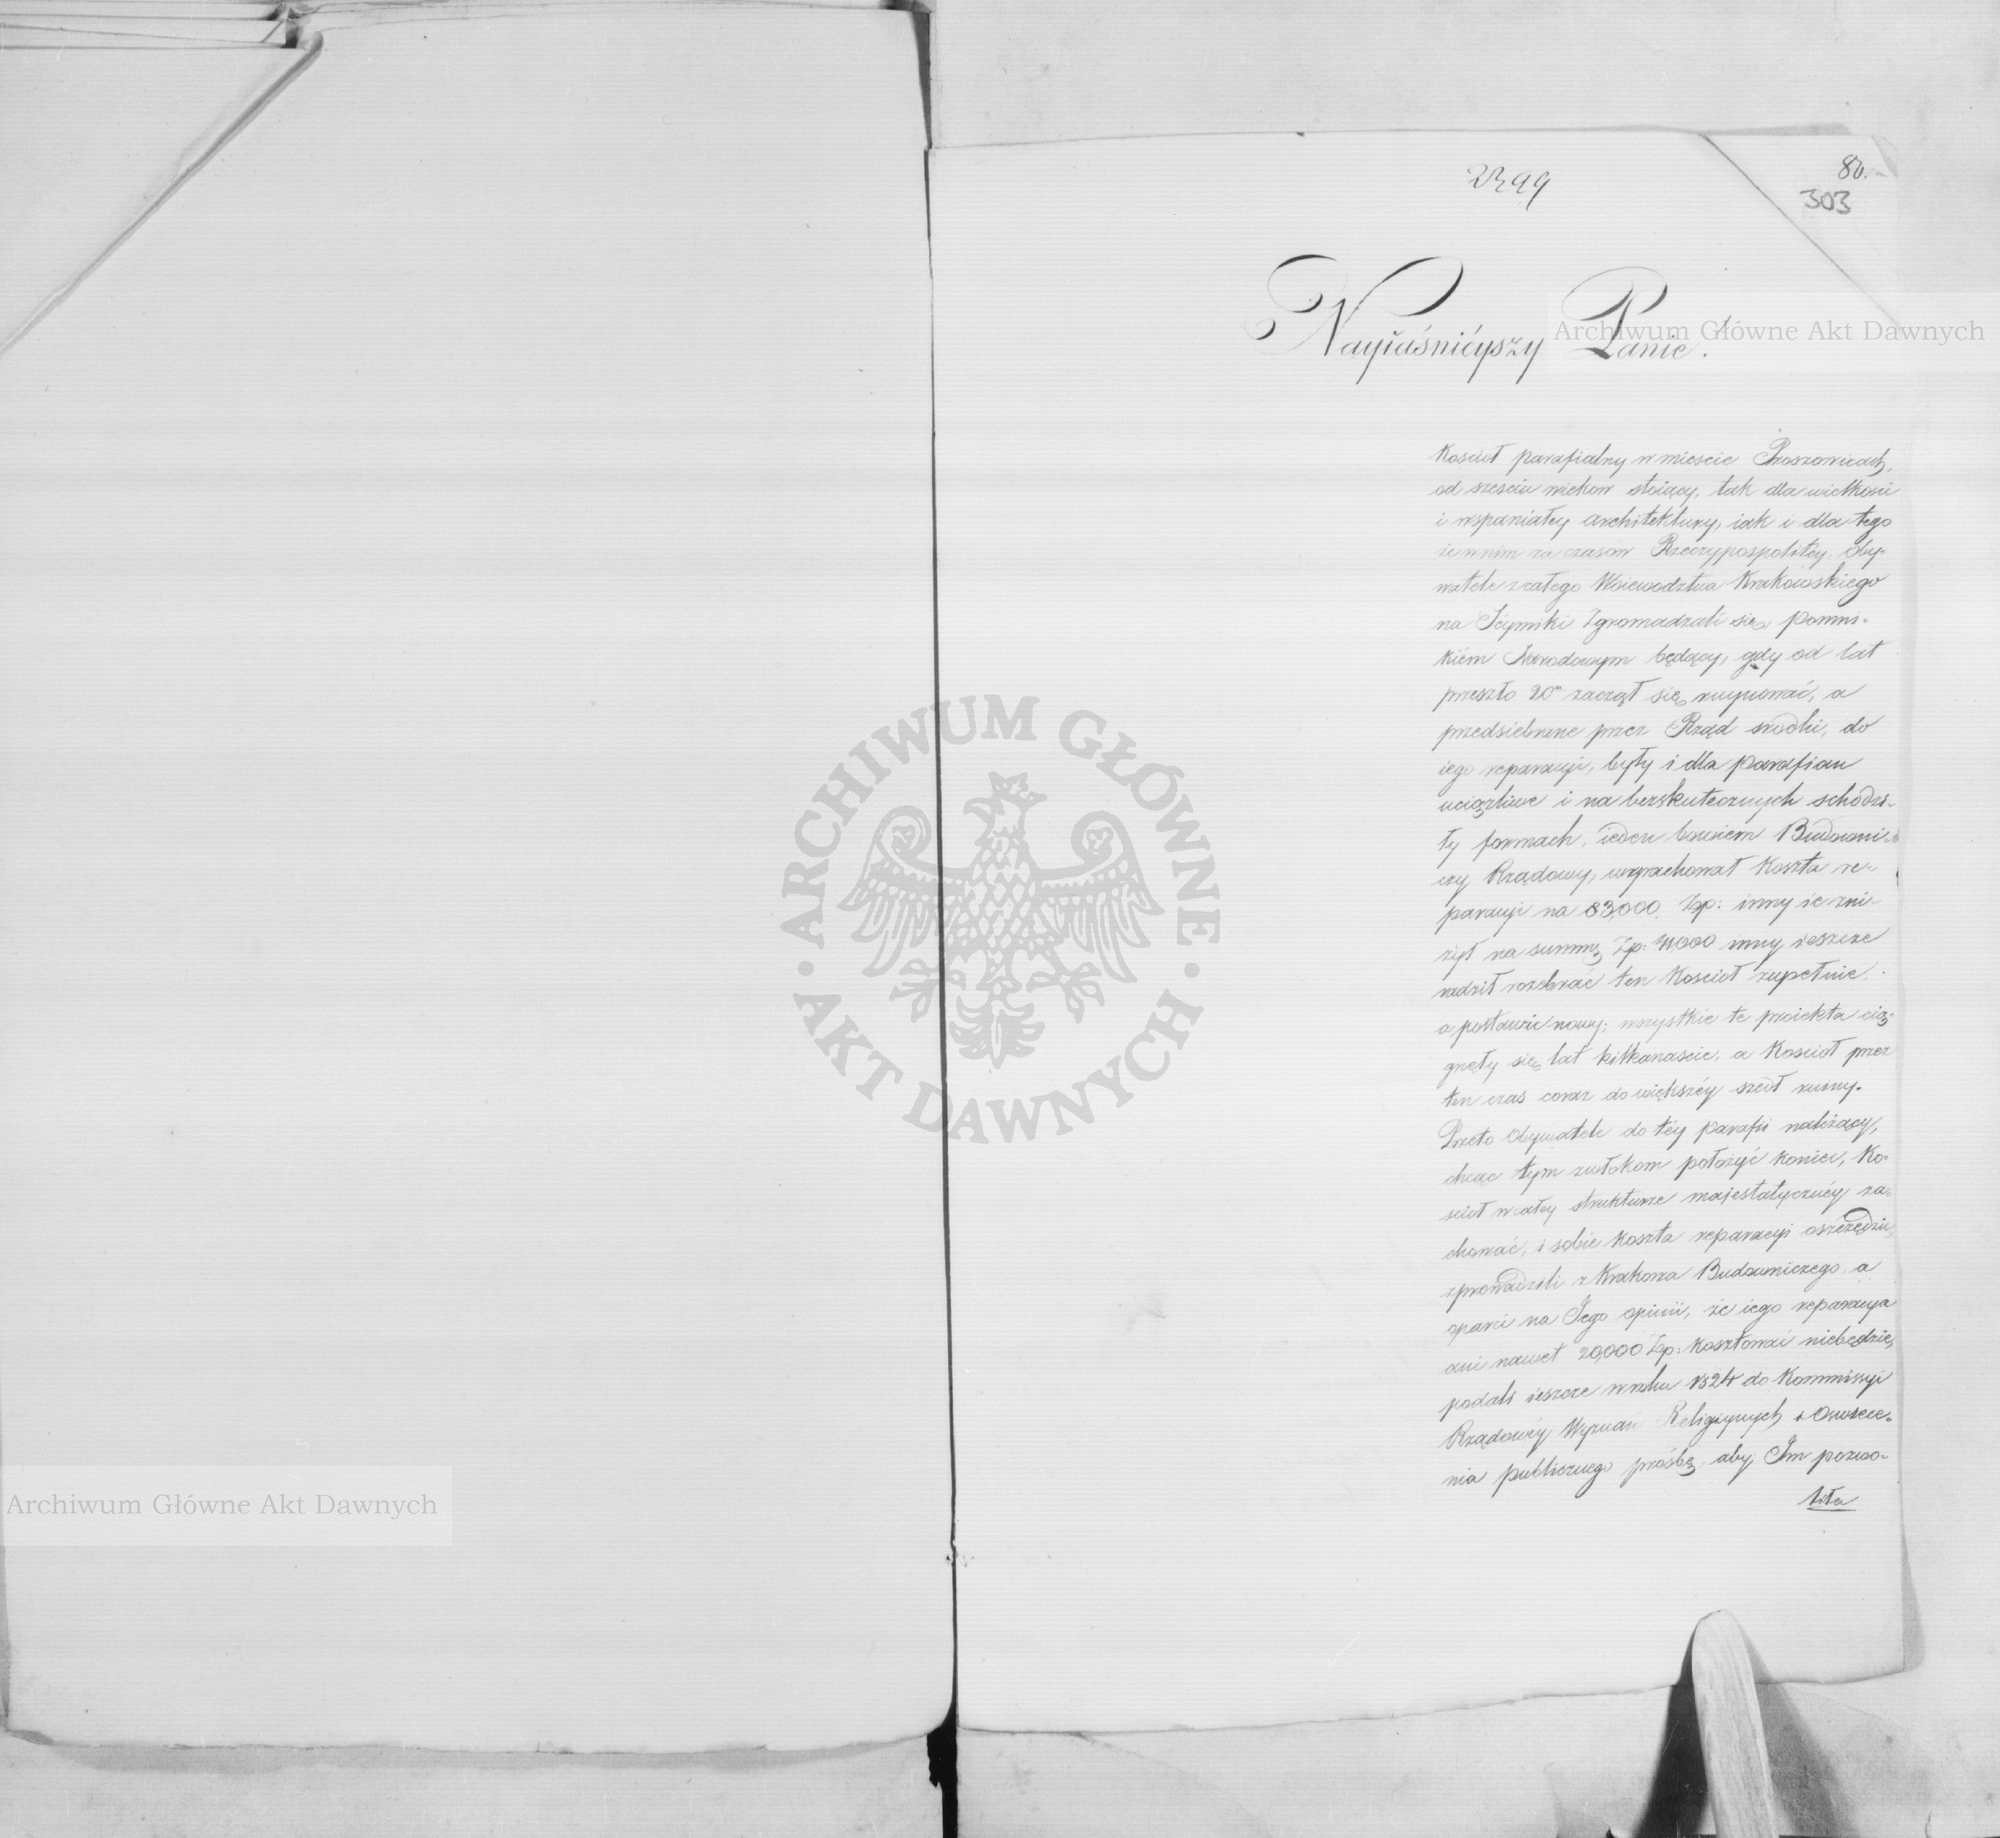 2399
80.
303
Nayiaśnieyszy Panie.
Kościoł parafialny w mieście Proszowicach,
od sześciu wieków stoiący, tak dla wielkości
i wspaniałey architektury, iak i dla tego
że w nim za czasów Rzeczypospolitéy, Oby-
watele z całego Woiewodztwa Krakowskiego
na Séymiki zgromadzali się, pomni-
kiém Narodowym będący, gdy od lat
przeszło 20 zaczął się ruynować, a
przedsiebrane przez Rząd srodki, do
iego reparacyi, były i dla parafian
uciążliwe i na bezskutecznych schodzi-
ły formach, ieden bowiem Budowni-
czy Rządowy, wyrachował koszta re-
paracyi na 83,000. Zp: inny ie zni-
żył na summę Zp: 41,000 inny ieszcze
radził rozebrać ten Kościoł zupełnie,
a postawić nowy; wszystkie te proiekta cią-
gnęły się lat kilkanaście, a Kościoł przez
ten czas coraz do większéy szedł ruiny.
Przeto Obywatele do téy parafii należący,
chcąc tym zwłokom położyć koniec, Ko-
ścioł w całey strukturze majestatycznéy za-
chować, i sobie koszta reparacyi oszczędzić,
sprowadzili z Krakowa Budowniczego, a
oparci na Jego opinii, że iego reparacya
ani nawet 20,000 Zp: kosztować niebędzie,
podali ieszcze w roku 1824 do Kommissyi
Rządowéy Wyznań Religiynych i Oswiece-
nia publicznego prośbę, aby Im pozwo-
liła
Archiwum Główne Akt Dawnych
Archiwum Główne Akt Dawnych
ARCHIWUM GŁÓWNE
AKT DAWNYCH